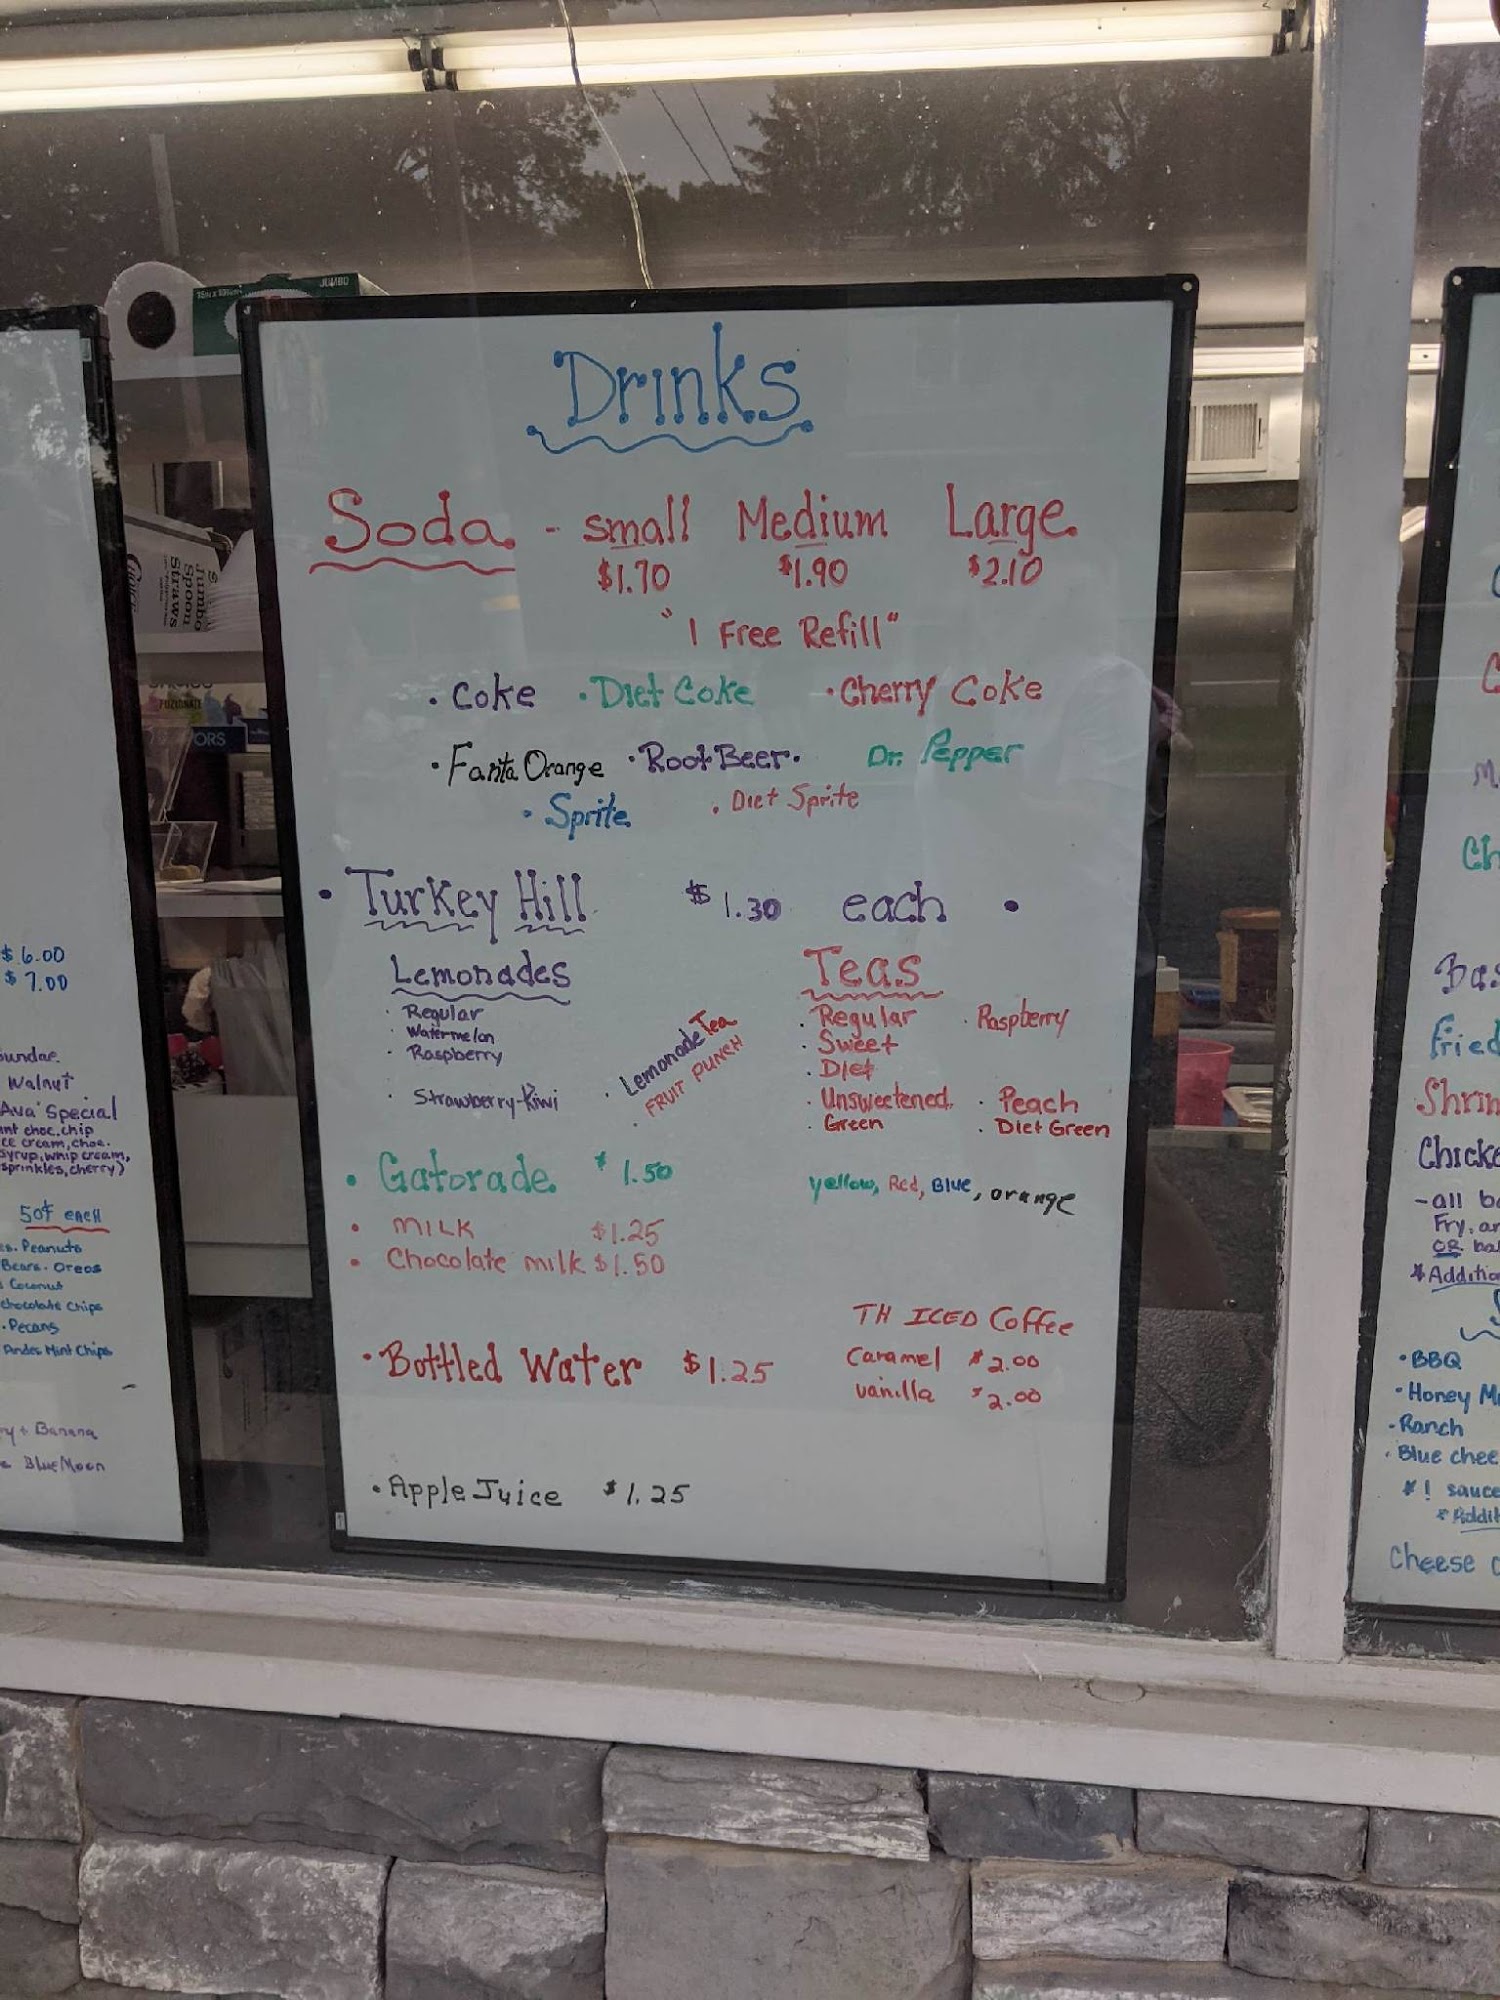 JUMBO
Choice
Jumbo
Spoon
Straws
Drinks
Soda - small Medium Large
$1.70 $1.90 $2.10
"1 Free Refill"
• Coke • Diet Coke • Cherry Coke
• Fanta Orange • Root Beer • Dr. Pepper
• Sprite • Diet Sprite
• Turkey Hill $1.30 each •
Lemonades
• Regular
• Watermelon
• Raspberry
• Strawberry-Kiwi
• Lemonade Tea
• FRUIT PUNCH
Teas
• Regular • Raspberry
• Sweet
• Diet
• Unsweetened • Peach
• Green • Diet Green
• Gatorade $1.50 yellow, Red, Blue, orange
• MILK $1.25
• Chocolate milk $1.50
TH ICED Coffee
Caramel $2.00
vanilla $2.00
• Bottled Water $1.25
• Apple Juice $1.25
$6.00
$7.00
Sundae
Walnut
Ava' Special
choc. chip
cream, choc.
syrup, whip cream,
sprinkles, cherry)
50¢ EACH
Peanuts
Bears. Oreos
Coconut
chocolate Chips
• Pecans
Andes Mint Chips
+ Banana
Blue Moon
fried
Fry, or
OR
• BBQ
• Honey
• Ranch
• Blue
cheese